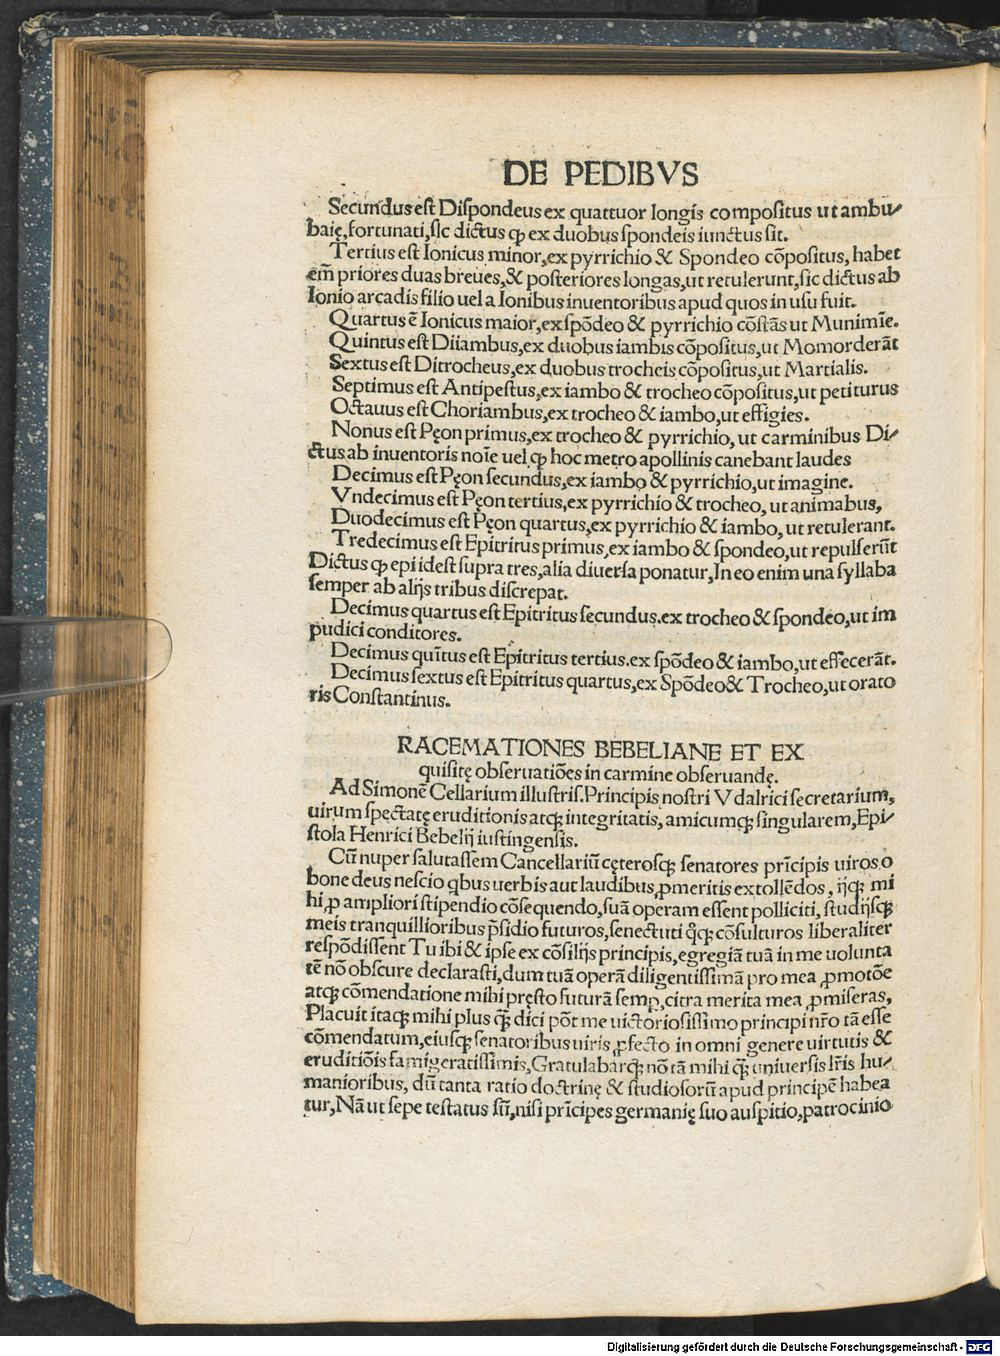 DE PEDIBVS
Secundus est Dispondeus ex quattuor longis compositus ut ambu/
baię, fortunati, sic dictus ꝙ ex duobus spondeis iunctus sit.
Tertius est Ionicus minor, ex pyrrichio & Spondeo cōpositus, habet
em̄ priores duas breues, & posteriores longas, ut retulerunt, sic dictus ab
Ionio arcadis filio uel a Ionibus inuentoribus apud quos in usu fuit.
Quartus ē Ionicus maior, ex spōdeo & pyrrichio cōstās ut Munimīe.
Quintus est Diiambus, ex duobus iambis cōpositus, ut Momorderāt
Sextus est Ditrocheus, ex duobus trocheis cōpositus, ut Martialis.
Septimus est Antipestus, ex iambo & trocheo cōpositus, ut petiturus
Octauus est Choriambus, ex trocheo & iambo, ut effigies.
Nonus est Pęon primus, ex trocheo & pyrrichio, ut carminibus Di/
ctus ab inuentoris noīe uel ꝙ hoc metro apollinis canebant laudes
Decimus est Pęon secundus, ex iambo & pyrrichio, ut imagine.
Vndecimus est Pęon tertius, ex pyrrichio & trocheo, ut animabus,
Duodecimus est Pęon quartus, ex pyrrichio & iambo, ut retulerant.
Tredecimus est Epitritus primus, ex iambo & spondeo, ut repulserūt
Dictus ꝙ epi idest supra tres, alia diuersa ponatur, In eo enim una syllaba
semper ab alijs tribus discrepat.
Decimus quartus est Epitritus secundus. ex trocheo & spondeo, ut im
pudici conditores.
Decimus quītus est Epitritus tertius. ex spōdeo & iambo, ut effecerāt.
Decimus sextus est Epitritus quartus, ex Spōdeo & Trocheo, ut orato
ris Constantinus.
RACEMATIONES BEBELIANE ET EX
quisitę obseruatiōes in carmine obseruandę.
Ad Simonē Cellarium illustris. Principis nostri Vdalrici secretarium,
uirum spectatę eruditionis atqꝫ integritatis, amicumqꝫ singularem, Epi/
stola Henrici Bebelij iustingensis.
Cū nuper salutassem Cancellariū cęterosqꝫ senatores prīcipis uiros o
bone deus nescio qbus uerbis aut laudibus ꝓ meritis extollēdos, ijqꝫ mi
hi, ꝓ ampliori stipendio cōsequendo, suā operam essent polliciti, studijsqꝫ
meis tranquillioribus p̄sidio futuros, senectuti q̊qꝫ cōsulturos liberaliter
respōdissent Tu ibi & ipse ex cōsilijs principis, egregiā tuā in me uolunta
tē nō obscure declarasti, dum tuā operā diligentissimā pro mea ꝓmotōe
atqꝫ cōmendatione mihi pręsto futurā semꝑ, citra merita mea ꝓmiseras,
Placuit itaqꝫ mihi plus q̄ꝫ dici pōt me uictoriosissimo principi nr̄o tā esse
cōmendatum, eiusqꝫ senatoribus uiris ꝓfecto in omni genere uirtutis &
eruditiōis famigeratissimis, Gratulabarqꝫ nō tā mihi q̄ꝫ uniuersis lr̄is hu/
manioribus, dū tanta ratio doctrinę & studiosorū apud principē habea
tur, Nā ut sepe testatus sū, nisi prīcipes germanię suo auspitio, patrocinio
Digitalisierung gefördert durch die Deutsche Forschungsgemeinschaft - DFG